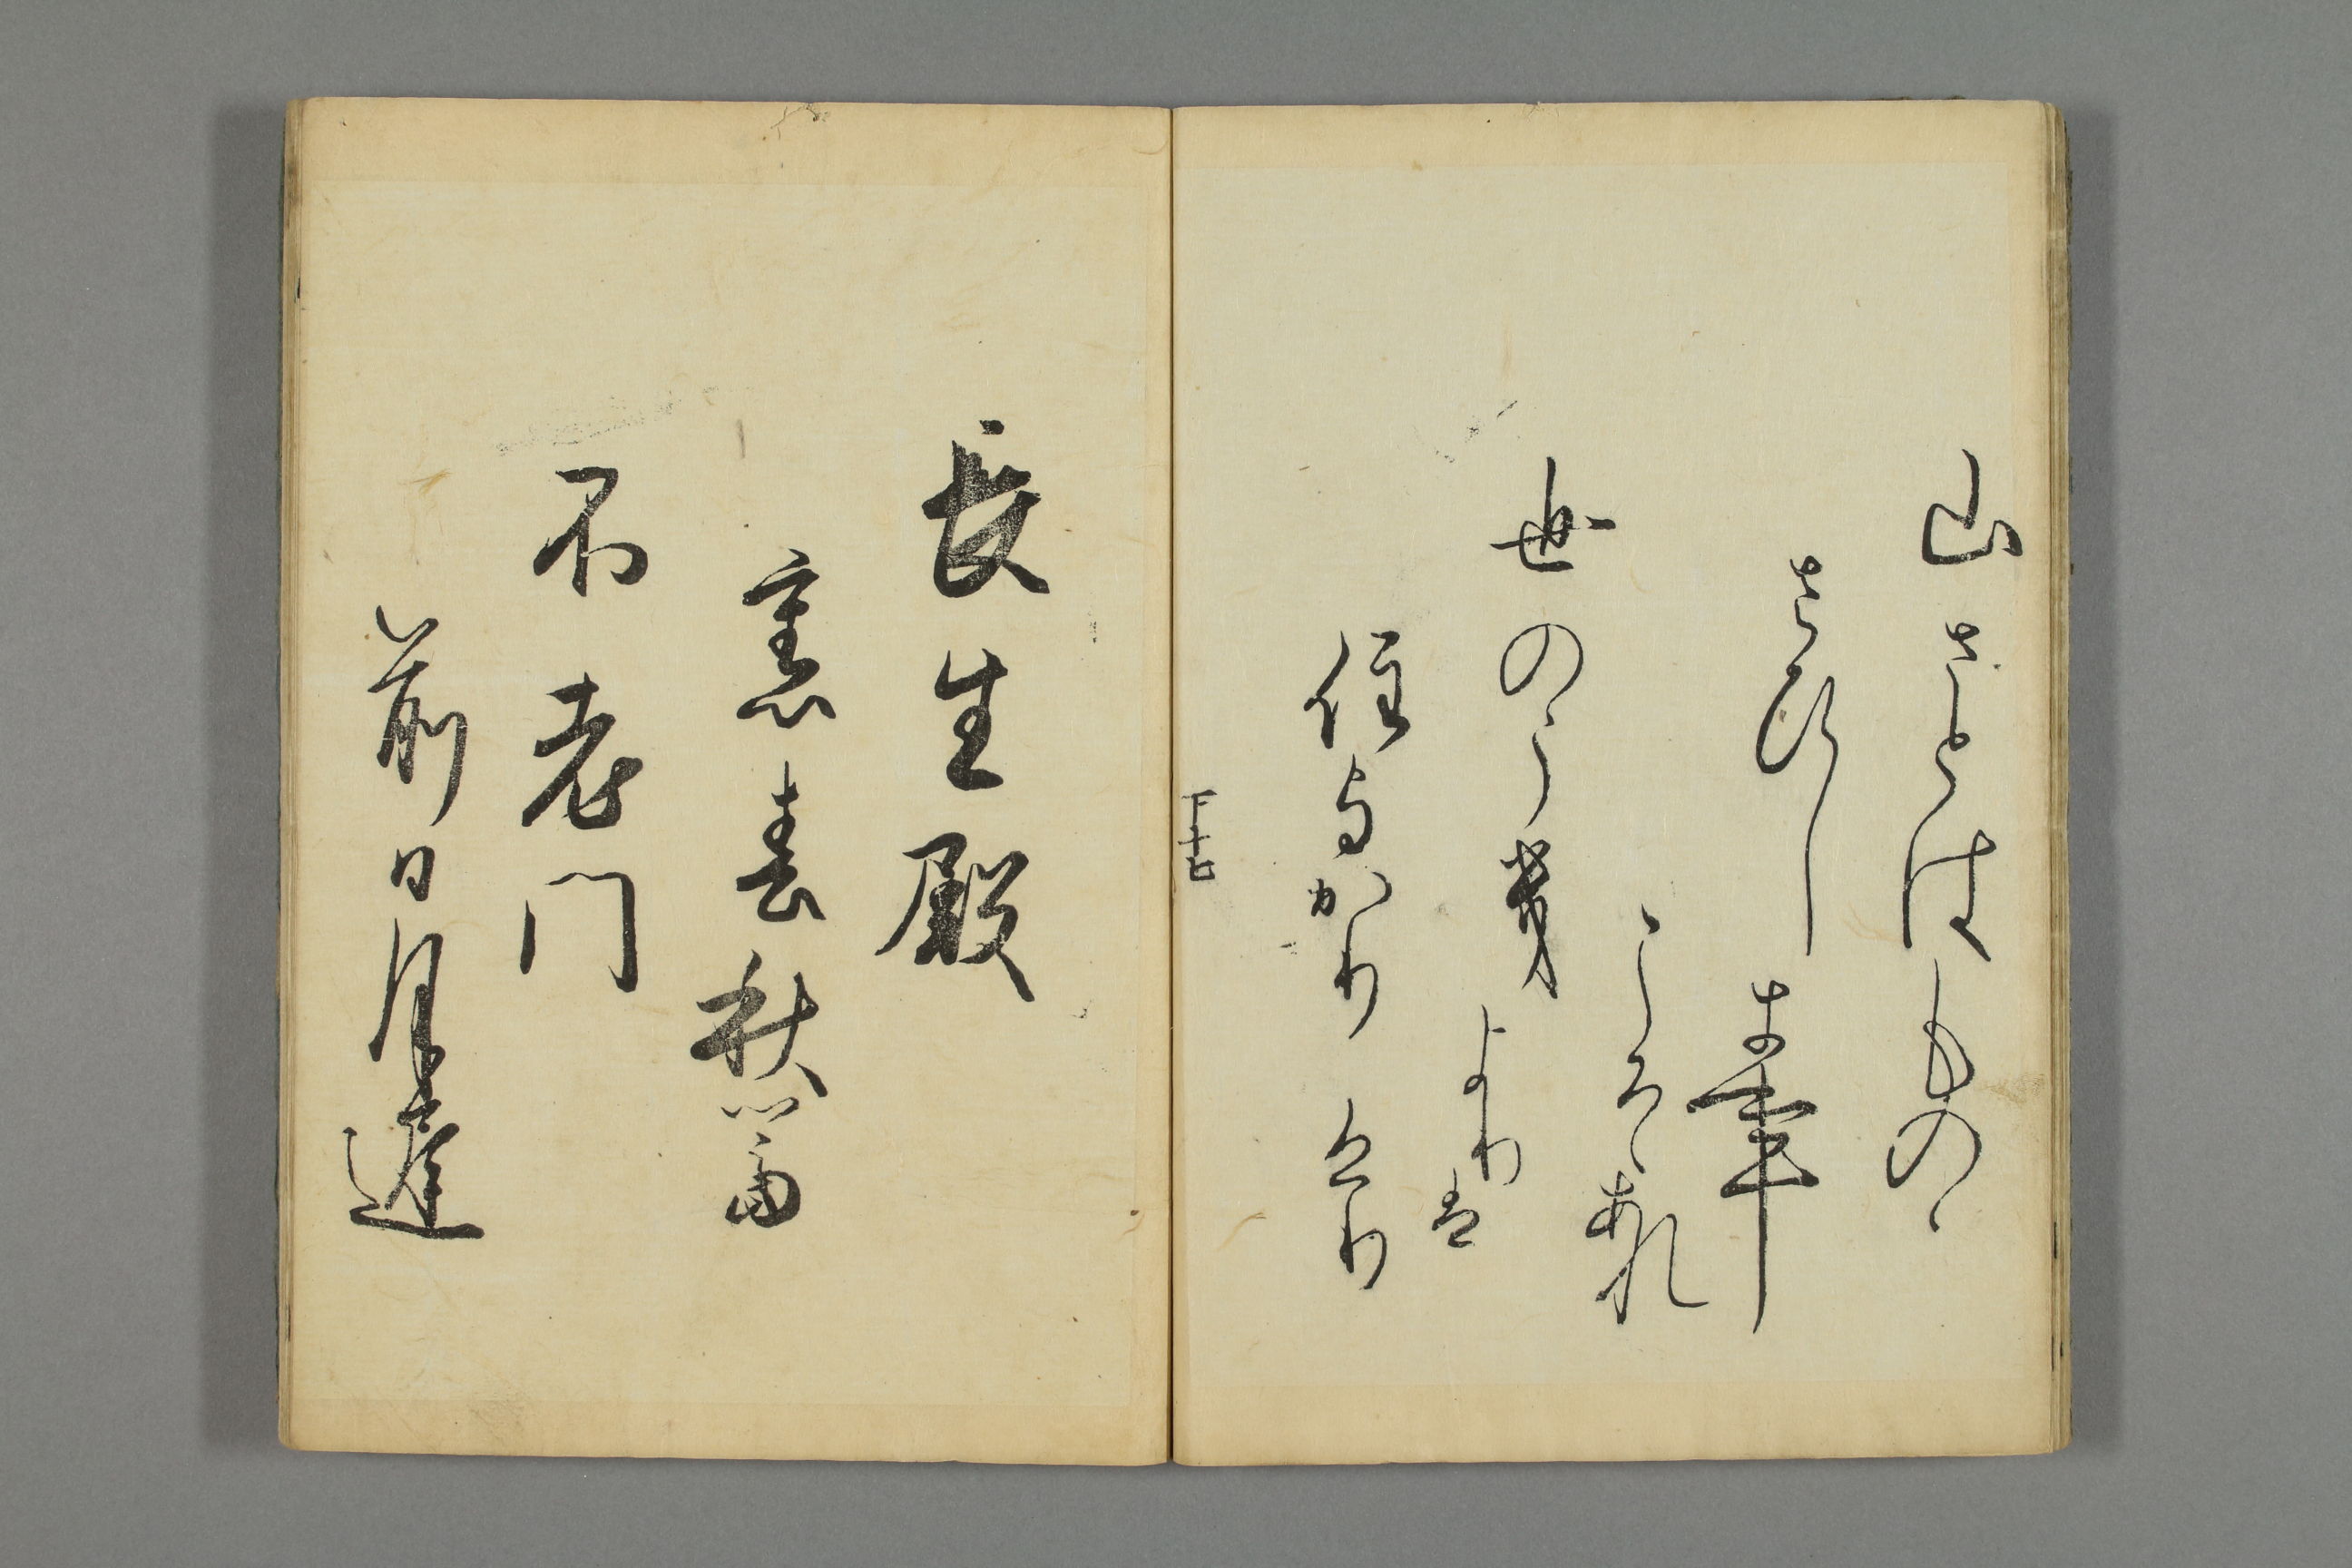 山さとはものゝ
さひし
き事
こそあれ
世のうき
よりは
住よかりけり
下十七
長生殿
裏春秋富
不老門
前日月遅